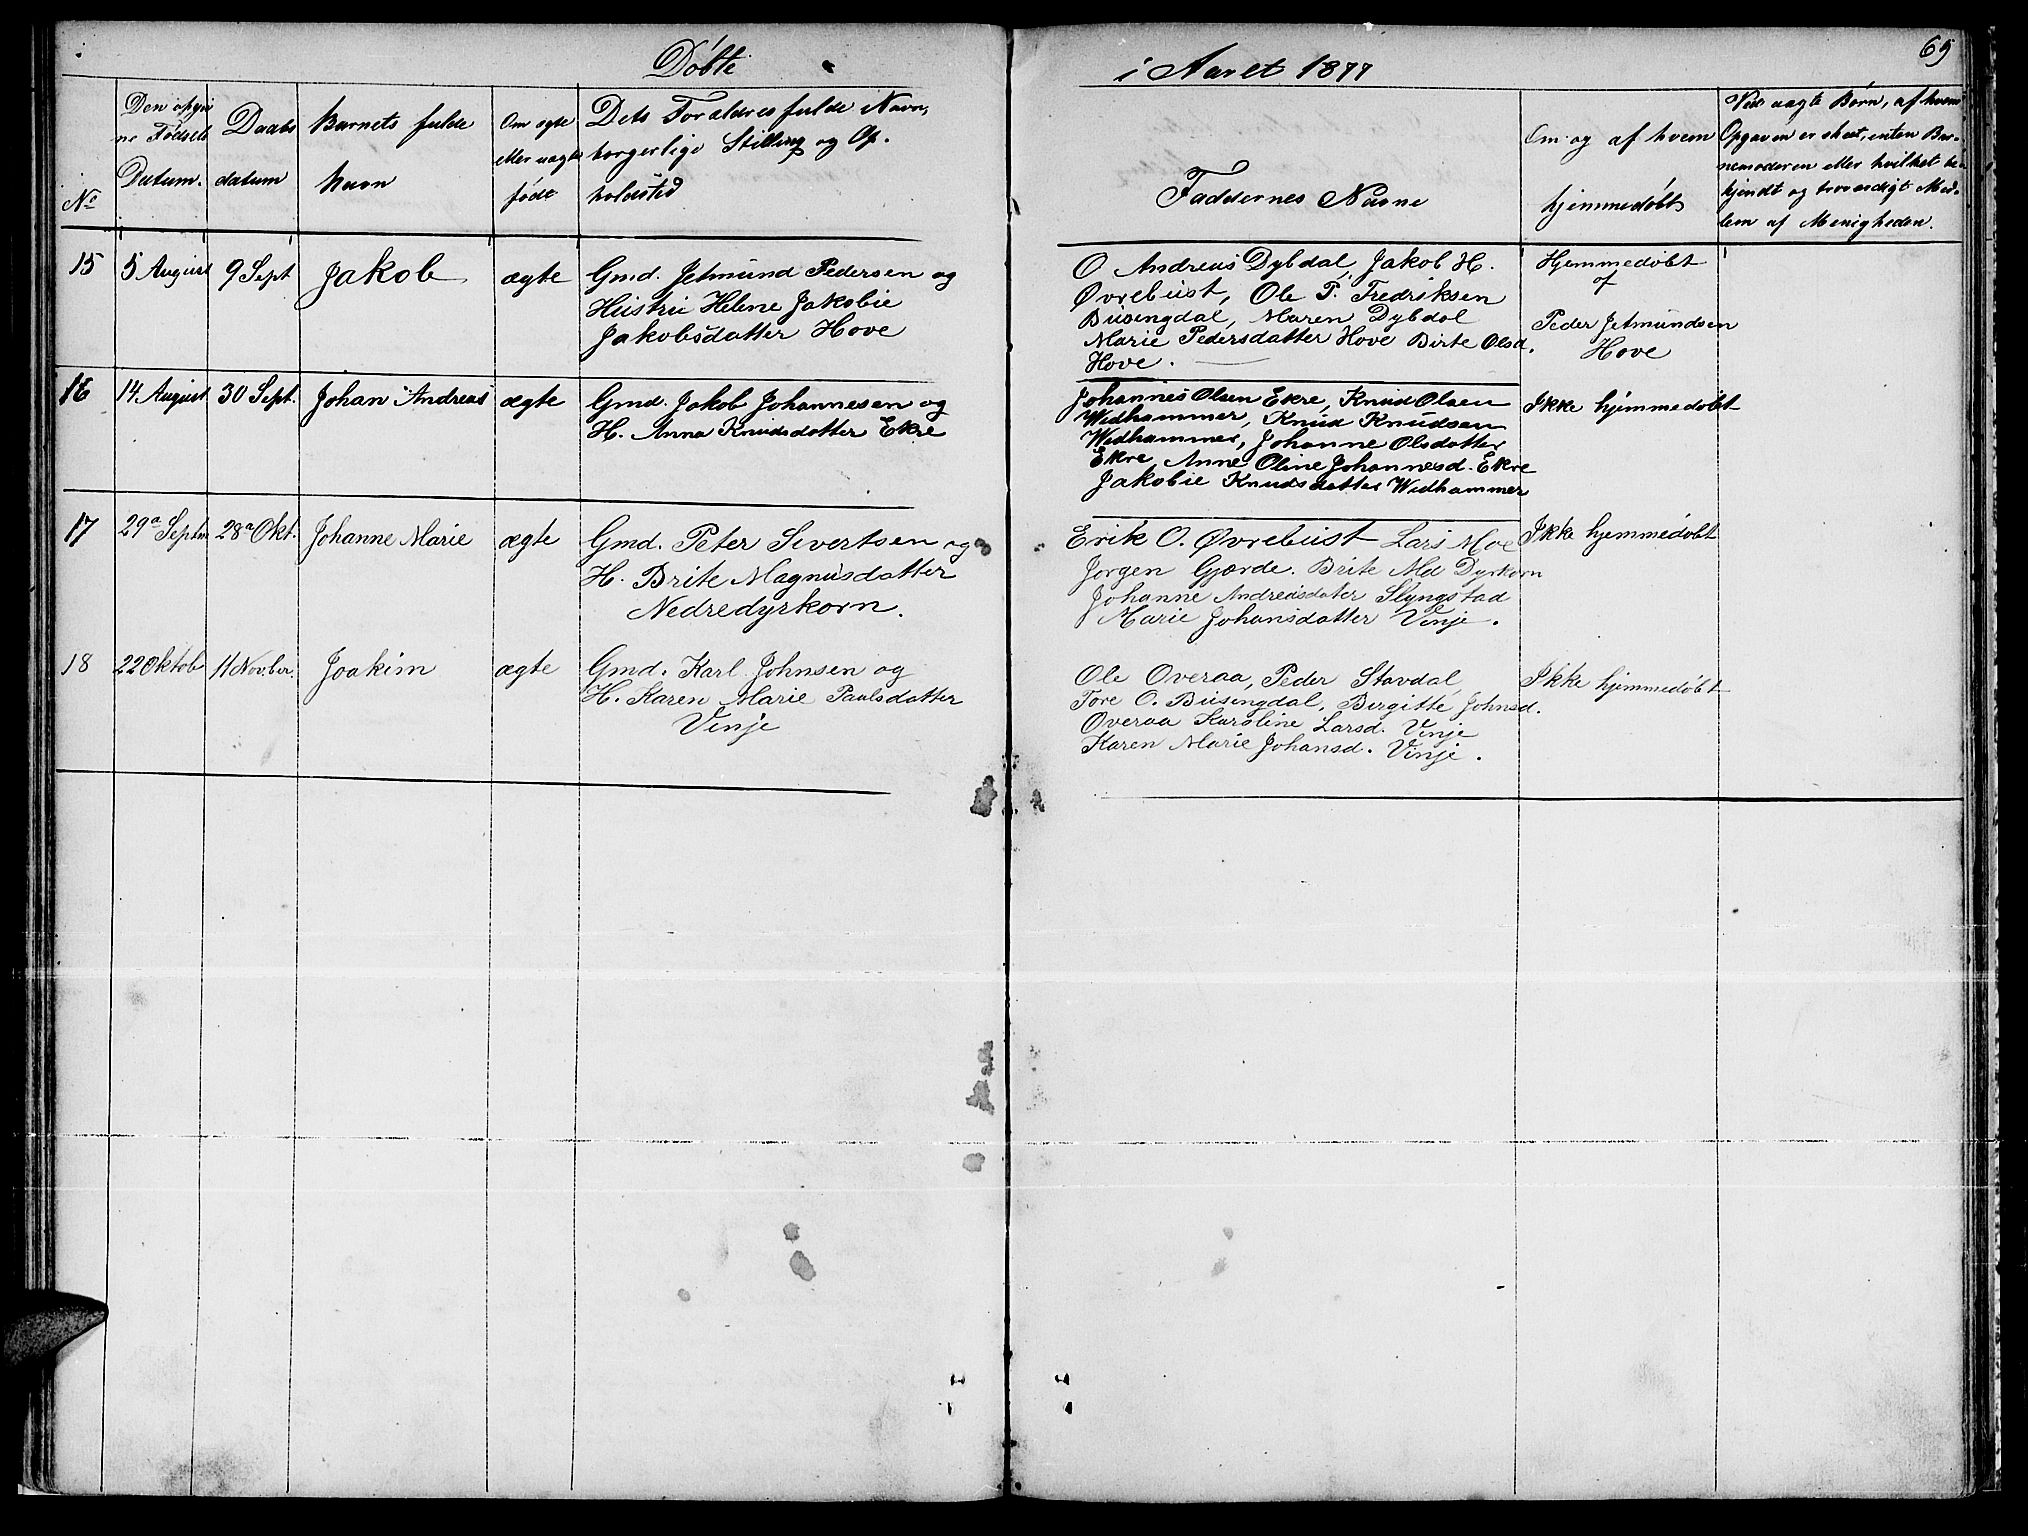 Døbte
i Aaret 1877
65
No
Den opgivne Fødsels Datum.
Daabs datum
Barnets fulde Navn
Om ægte eller uægte født
Dets Forældres fulde Navn, borgerlige Stilling og Opholdsted
Faddernes Navne
Om og af hvem hjemmedøbt
Ved uægte Børn, af hvem
Opgaven er skeet, enten Bar-
nemoderen eller hvilket be-
kjendt og troværdigt Med-
lem af Menigheden.
15
5 August
9 Sept
Jakob
ægte
Gmd. Jetmund Pedersen og
Hustru Helene Jakobie
Jakobsdatter Hove
O Andreas Dybdal, Jakob H.
Øvrebust, Ole P. Fredriksen
Busengdal, Maren Dybdal
Marie Pedersdatter Hove Birte Olsd.
Hove.
Hjemmedøbt
af
Peder Jetmundsen
Hove
16
14 August
30 Sept.
Johan Andreas
ægte
Gmd. Jakob Johannesen og
H. Anna Knudsdatter Ekre
Johannes Olsen Ekre, Knud Olsen
Widhammer, Knud Knudsen
Widhammer, Johanne Olsdatter
Ekre Anne Oline Johannesd. Ekre
Jakobie Knudsdatter Widhammer
Ikke hjemmedøbt
17
29a Septm
28a Okt.
Johanne Marie
ægte
Gmd. Peter Sivertsen og
H. Brite Magnusdatter
Nedredyrkorn.
Erik O. Øvrebust Lars Moe
Jørgen Gjærde. Brite Md Dyrkorn
Johanne Andreasdater Slyngstad
Marie Johansdatter Vinje.
Ikke hjemmedøbt
18
22 Oktob
11 Novber.
Joakim
ægte
Gmd. Karl Johnsen og
H. Karen Marie Paulsdatter
Vinje
Ole Overaa, Peder Stavdal,
Tore O. Busingdal, Birgitte Johnsd.
Overaa Karoline Larsd. Vinje
Karen Marie Johansd. Vinje.
Ikke hjemmedøbt